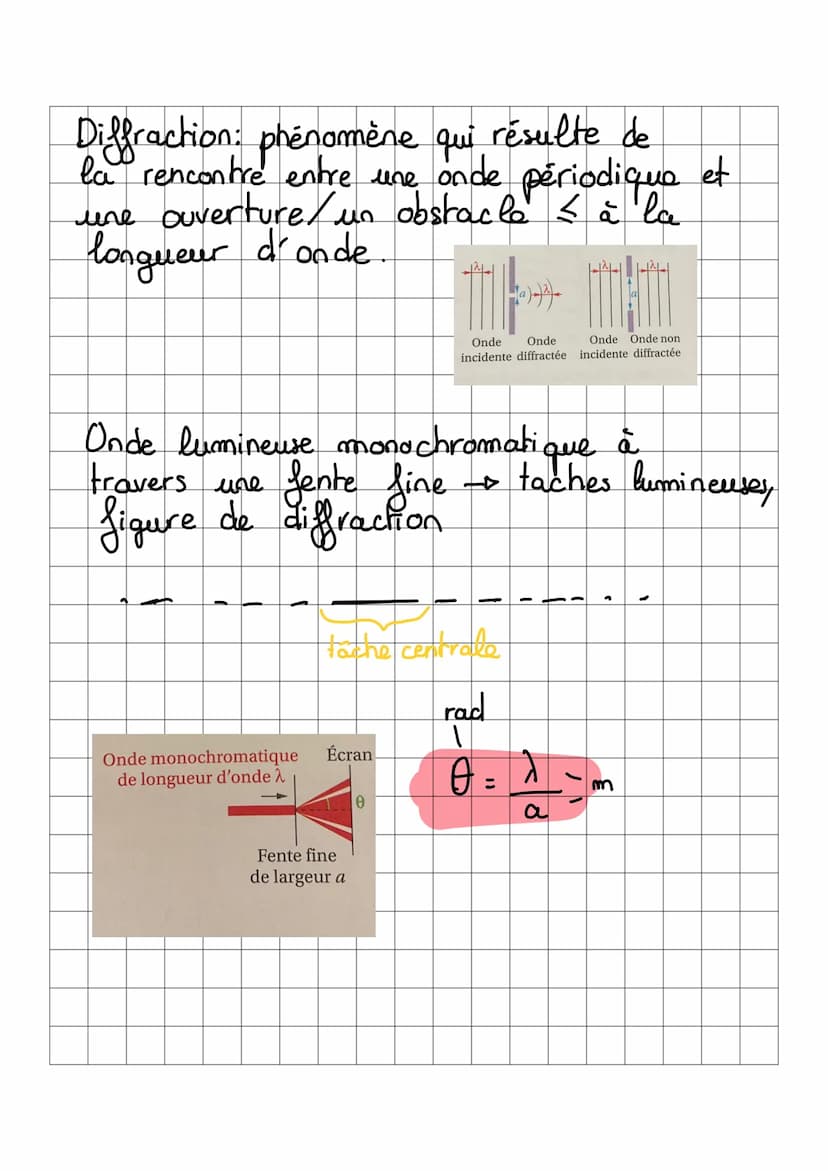 Diffraction: phénomène qui résulte de
la rencontre entre une onde périodique et
une ouverture/un obstacle ≤ à la
longueur d'onde.
λ λ λ λ
a a
Onde Onde Onde Onde non
incidente diffractée incidente diffractée
Onde lumineuse monochromatique à
travers une fente fine → taches lumineuses,
figure de diffraction
tâche centrale
rad
θ = λ/a = m
Onde monochromatique Écran
de longueur d'onde λ
θ
Fente fine
de largeur a